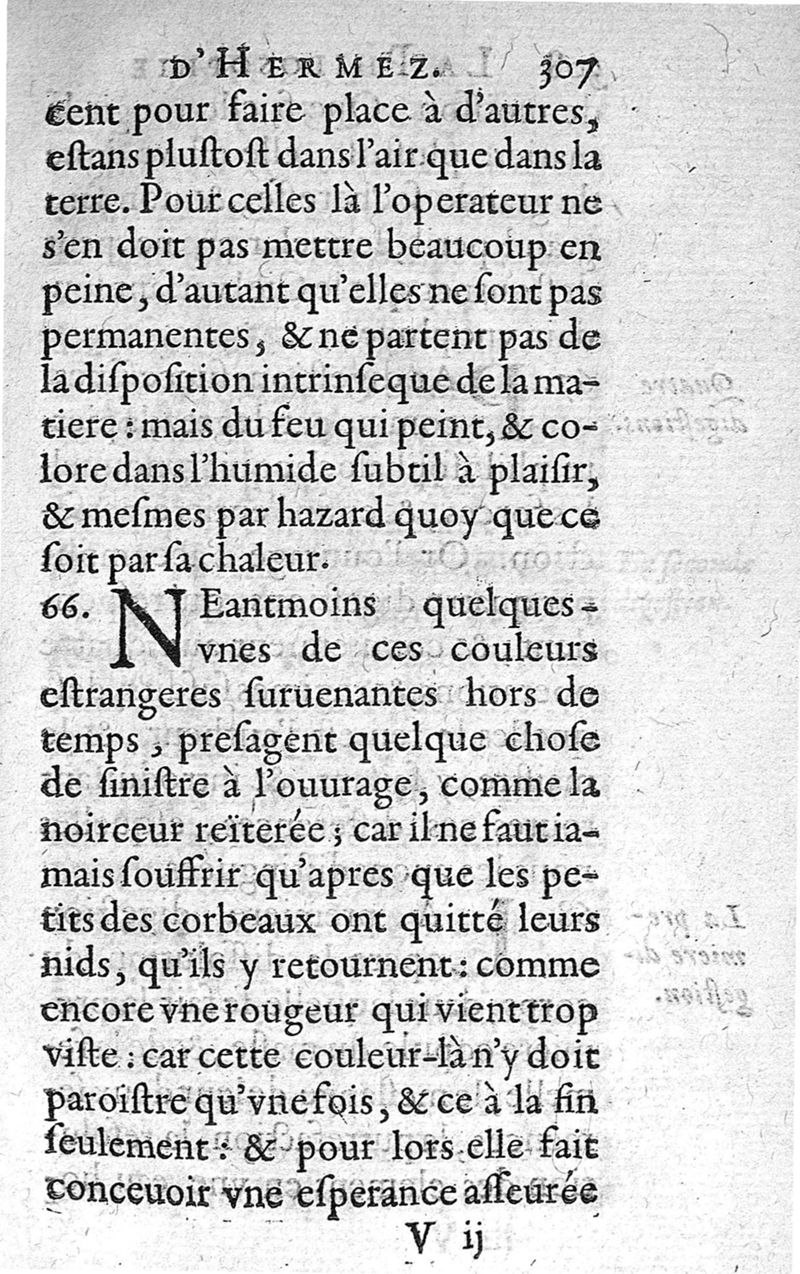 D'HERMEZ. 307
cent pour faire place à d'autres,
eſtans pluſtoſt dans l'air que dans la
terre. Pour celles là l'operateur ne
s'en doit pas mettre beaucoup en
peine, d'autant qu'elles ne ſont pas
permanentes, & ne partent pas de
la diſpoſition intrinſeque de la ma-
tiere : mais du feu qui peint, & co-
lore dans l'humide ſubtil à plaiſir,
& meſmes par hazard quoy que ce
ſoit par ſa chaleur.
66. NEantmoins quelques-
vnes de ces couleurs
eſtrangeres ſuruenantes hors de
temps, preſagent quelque choſe
de ſiniſtre à l'ouurage, comme la
noirceur reïterée ; car il ne faut ia-
mais ſouffrir qu'apres que les pe-
tits des corbeaux ont quitté leurs
nids, qu'ils y retournent : comme
encore vne rougeur qui vient trop
viſte : car cette couleur-là n'y doit
paroiſtre qu'vne fois, & ce à la fin
ſeulement : & pour lors elle fait
conceuoir vne eſperance aſſeurée
V ij